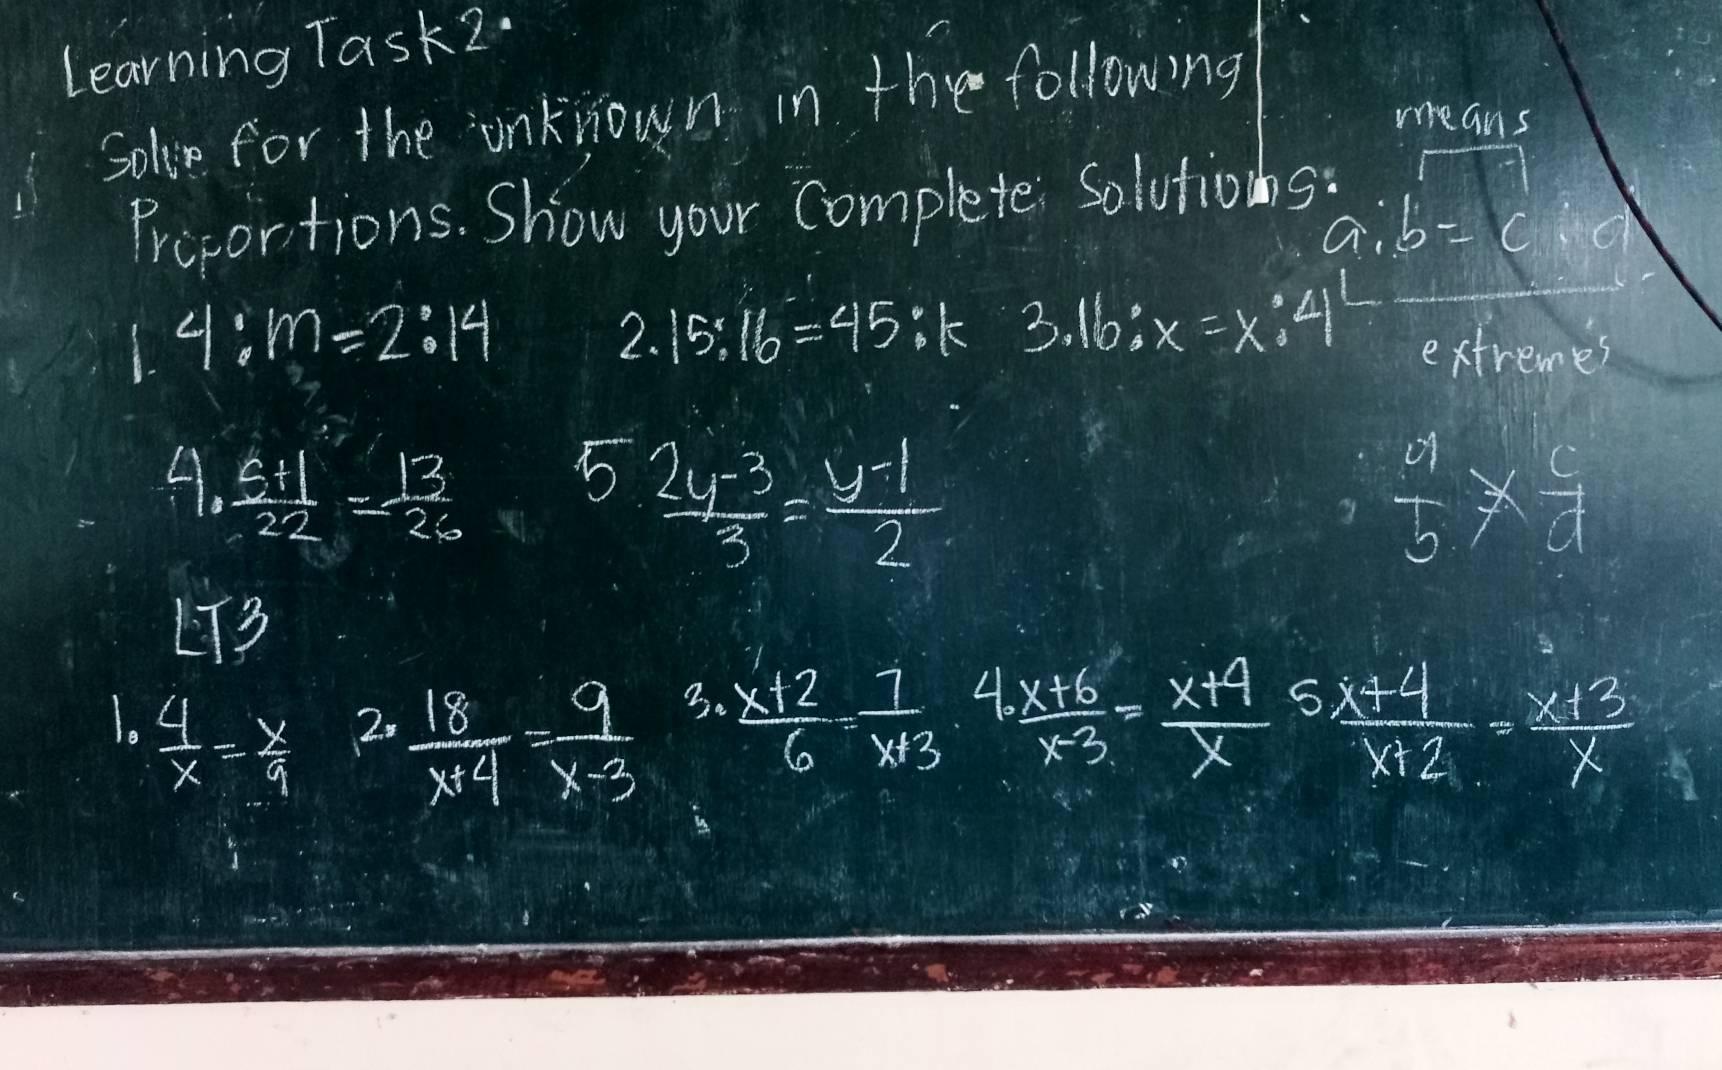 Learning Task 2.
Solve for the unknown in the following
Proportions. Show your Complete Solutions.
means
a:b = c:d
extremes
1. 4:m=2:14 2. 15:16=45:k 3. 16:x=x:4
4. s+1/22 = 13/26 5 2y-3/3 = y-1/2
a/b = c/d
LT3
1. 4/x = x/9 2. 18/x+4 = 9/x-3 3. x+2/6 = 7/x+3 4. x+6/x-3 = x+4/x 5 x+4/x+2 = x+3/x